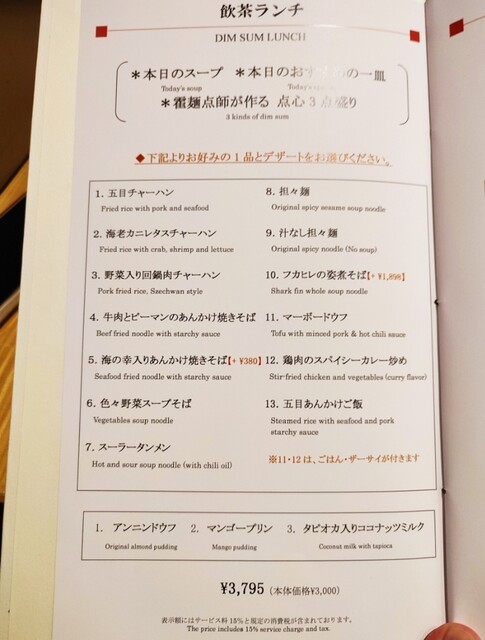 飲茶ランチ
DIM SUM LUNCH
＊本日のスープ ＊本日のおすすめの一皿
Today's soup
＊霍麺点師が作る 点心３点盛り
3 kinds of dim sum
◆下記よりお好みの１品とデザートをお選びください。
1. 五目チャーハン
Fried rice with pork and seafood
2. 海老カニレタスチャーハン
Fried rice with crab, shrimp and lettuce
3. 野菜入り回鍋肉チャーハン
Pork fried rice, Szechwan style
4. 牛肉とピーマンのあんかけ焼きそば
Beef fried noodle with starchy sauce
5. 海の幸入りあんかけ焼きそば【+ ¥380】
Seafood fried noodle with starchy sauce
6. 色々野菜スープそば
Vegetables soup noodle
7. スーラータンメン
Hot and sour soup noodle (with chili oil)
8. 担々麺
Original spicy sesame soup noodle
9. 汁なし担々麺
Original spicy noodle (No soup)
10. フカヒレの姿煮そば【+ ¥1,898】
Shark fin whole soup noodle
11. マーボードウフ
Tofu with minced pork & hot chili sauce
12. 鶏肉のスパイシーカレー炒め
Stir-fried chicken and vegetables (curry flavor)
13. 五目あんかけご飯
Steamed rice with seafood and pork
starchy sauce
※11・12 は、ごはん・ザーサイが付きます
1. アンニンドウフ 2. マンゴープリン 3. タピオカ入りココナッツミルク
Original almond pudding Mango pudding Coconut milk with tapioca
¥3,795 (本体価格¥3,000)
表示額にはサービス料 15%と規定の消費税が含まれております。
The price includes 15% service charge and tax.